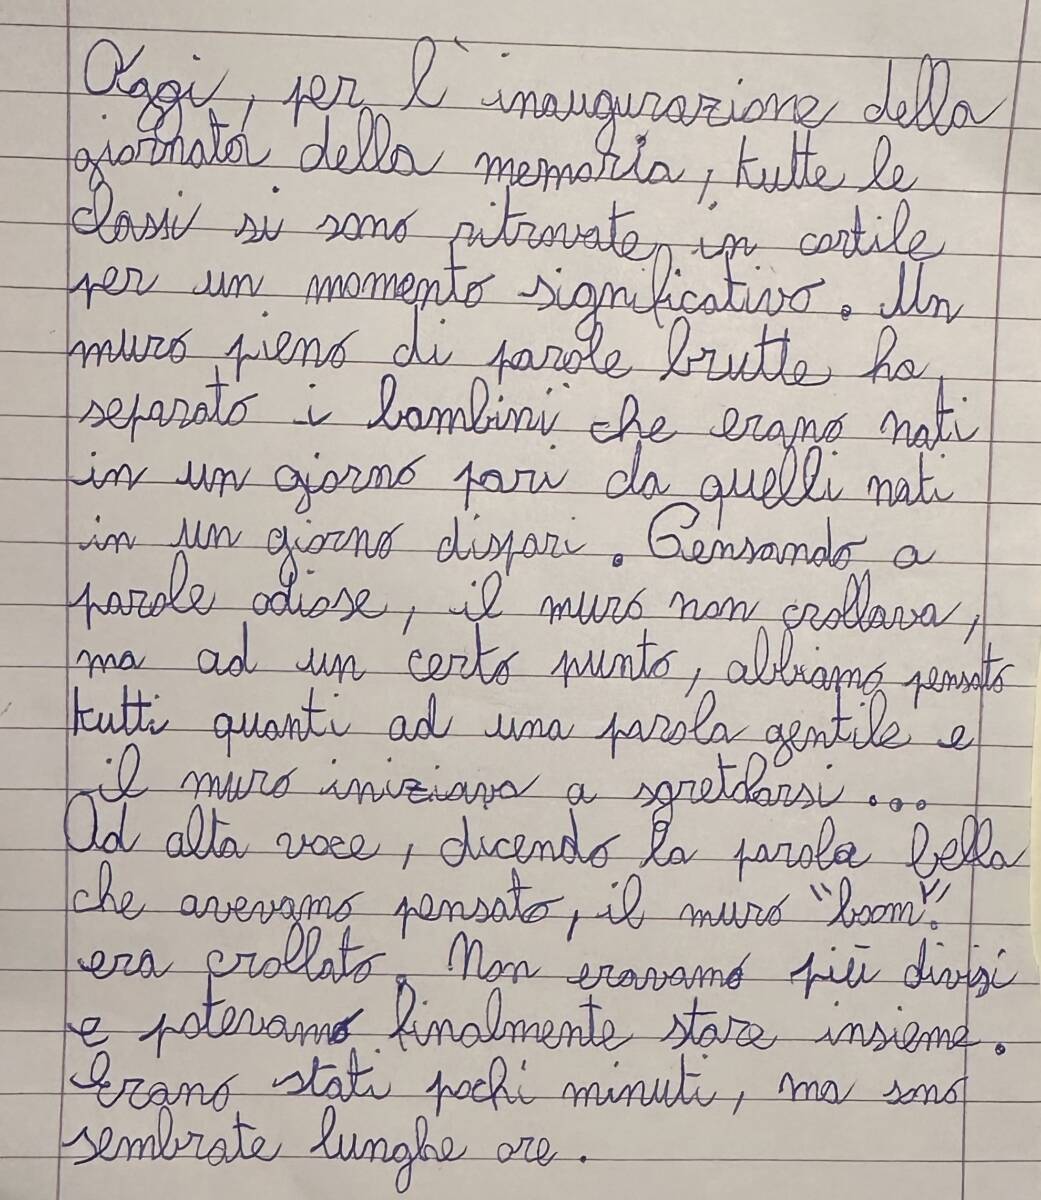 Oggi, per l'inaugurazione della
giornata della memoria, tutte le
classi si sono ritrovate in cortile
per un momento significativo. Un
muro pieno di parole brutte ha
separato i bambini che erano nati
in un giorno pari da quelli nati
in un giorno dispari. Pensando a
parole odiose, il muro non crollava,
ma ad un certo punto, abbiamo pensato
tutti quanti ad una parola gentile e
il muro iniziava a sgretolarsi...
Ad alta voce, dicendo la parola bella
che avevamo pensato, il muro "boom".
era crollato. Non eravamo più divisi
e potevamo finalmente stare insieme.
Erano stati pochi minuti, ma sono
sembrate lunghe ore.